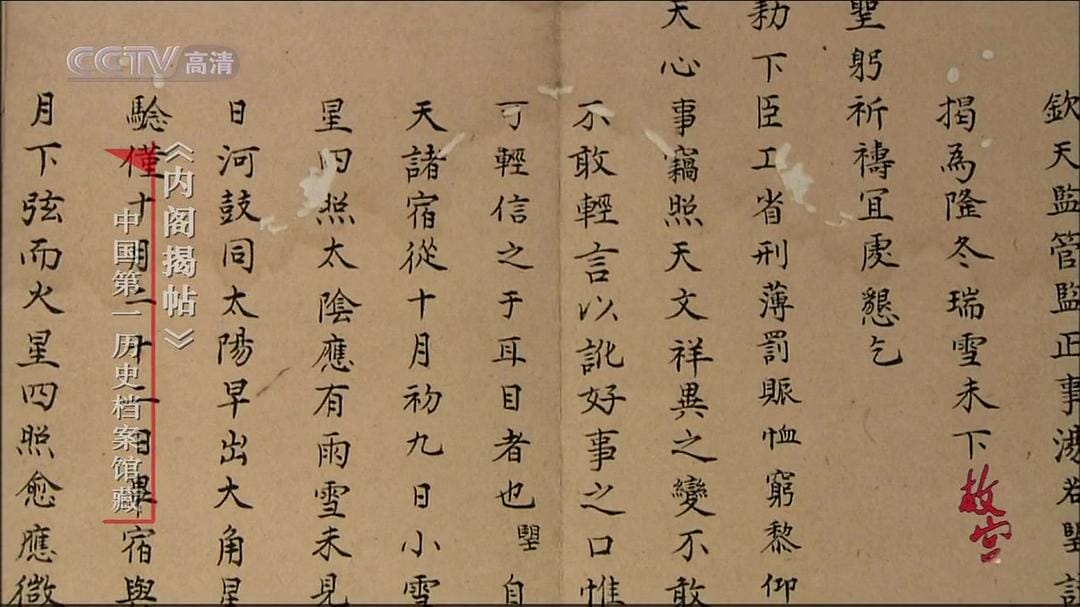 CCTV高清
欽天監管監正事湯若望謹
揭為隆冬瑞雪未下
聖躬祈禱冝處懇乞
勑下臣工省刑薄罰賑恤窮黎仰
天心事竊照天文祥異之變不敢
不敢輕言以訛好事之口惟
可輕信之于耳目者也望自
天諸宿從十月初九日小雪
星四照太陰應有雨雪未見
日河鼓同太陽早出大角星
驗僅十月二十二日畢宿與
月下弦而火星四照愈應微
《内阁揭帖》
中国第一历史档案馆藏
故宫